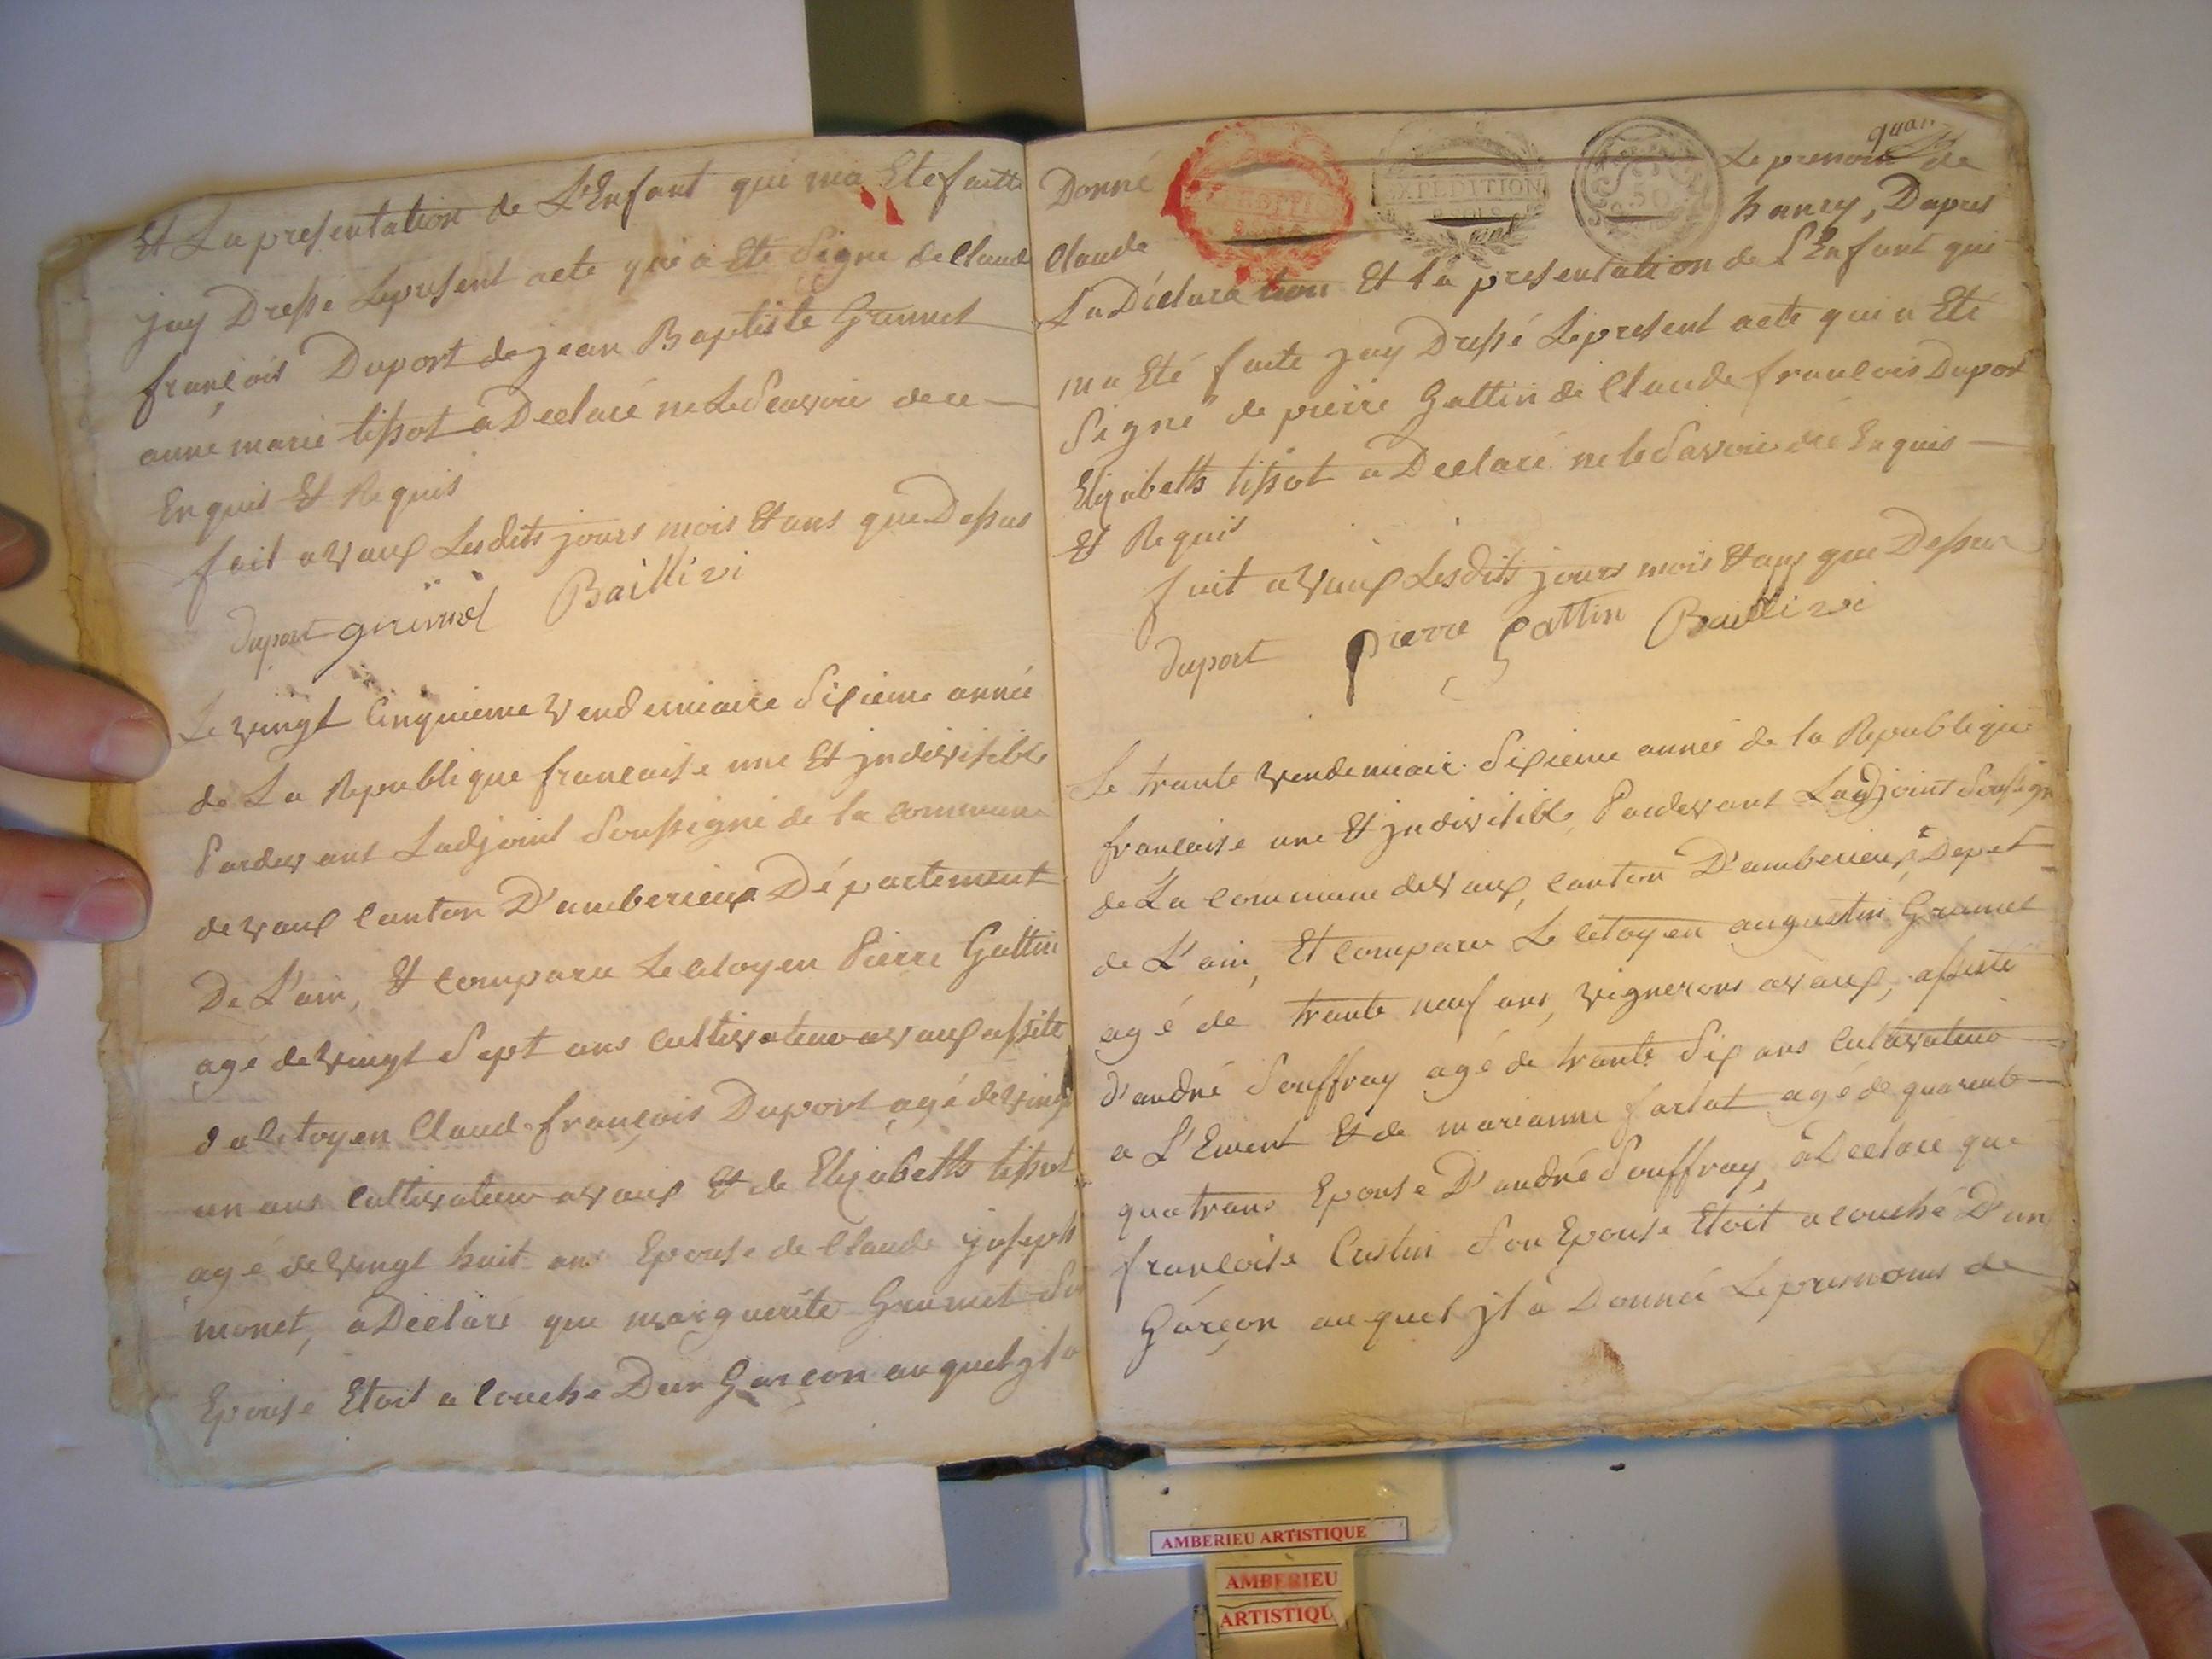 Et La presentation de L'Enfant qui ma Ete faitte
jay Dressé Lepresent acte qui a Ete Signe de Claud
françois Duport de jean Baptiste Grumet
anne marie tissot a Declaré ne Le Scavoir de ce
Enquis Et Requis
fait a Vaux Lesdits jours mois Et ans que Dessus
duport grumel Baillivi
Le vingt Cinquieme Vendemiaire Sixieme année
de La Republique francaise une Et jndivisible
Pardevant Ladjoint Soussigné de la commune
de vaux Canton D'amberieux Département
De L'ain, Et compara Le Citoyen Pierre Gattin
agé de vingt Sept ans Cultivateur a vaux assité
du Citoyen Claud françois Duport agé de vingt
un ans Cultivateur a vaux Et de Elizabeth tissot
agé de Vingt huit ans Epouse de Claude joseph
monet, a Declaré que marguerite Grumet Son
Epouse Etoit a Couché Dun Garcon au quel jl a
Donné Le prenom de
quan
Claude hanry, Dapres
EXPEDITION
50
La Déclaration Et la presentation de L'Enfant qui
ma Eté faite jay Dressé Lepresent acte qui a Eté
Signé de pierre Gattin de Claude francois Duport
Elizabeth tissot a Declaré ne le Savoir de Enquis
Et Requis
fait a Vaux Lesdits jours mois Et ans que Dessus
duport pierre gattin Baillivi
Le trante Vendemiair Sixieme année de la Republique
francaise une Et jndivisible, Pardevant Ladjoint Soussigné
de La Commune de Vaux, Canton D'amberieux, Depet
de L'ain, Et compara Le Citoyen augustin Grumet
agé de trante neuf ans, vignerons a vaux, assisté
d'andré Souffray agé de trante Six ans Cultivateur
a L'Ement Et de marianne farlat agé de quarente
quatrans Epouse D'andré Souffray, a Declaré que
francoise Custin Son Epouse Etoit a couché D'un
Garçon au quel jl a Donné Le prenoms de
AMBERIEU ARTISTIQUE
AMBERIEU
ARTISTIQU